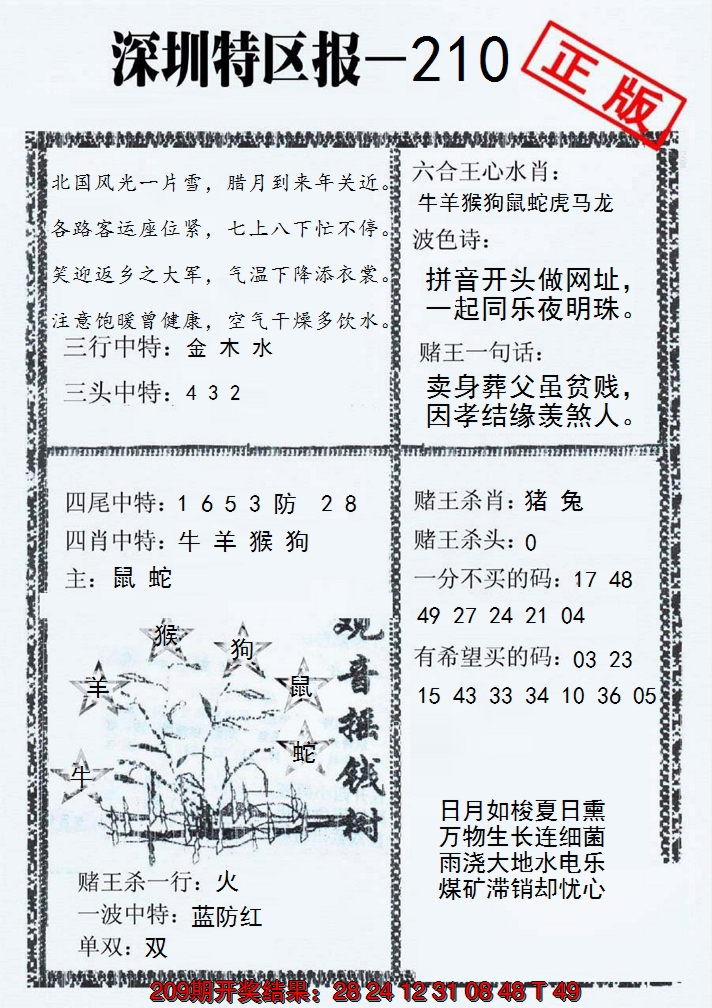 深圳特区报—210
正版
北国风光一片雪，腊月到来年关近。
各路客运座位紧，七上八下忙不停。
笑迎返乡之大军，气温下降添衣裳。
注意饱暖曾健康，空气干燥多饮水。
三行中特：金 木 水
三头中特：4 3 2
六合王心水肖：
牛羊猴狗鼠蛇虎马龙
波色诗：
拼音开头做网址，
一起同乐夜明珠。
赌王一句话：
卖身葬父虽贫贱，
因孝结缘羡煞人。
四尾中特：1 6 5 3 防 2 8
四肖中特：牛 羊 猴 狗
主：鼠 蛇
猴
狗
羊
鼠
蛇
牛
观音摇钱树
赌王杀一行：火
一波中特：蓝防红
单双：双
赌王杀肖：猪 兔
赌王杀头：0
一分不买的码：17 48
49 27 24 21 04
有希望买的码：03 23
15 43 33 34 10 36 05
日月如梭夏日熏
万物生长连细菌
雨浇大地水电乐
煤矿滞销却忧心
209期开奖结果：28 24 12 31 08 48 T 49